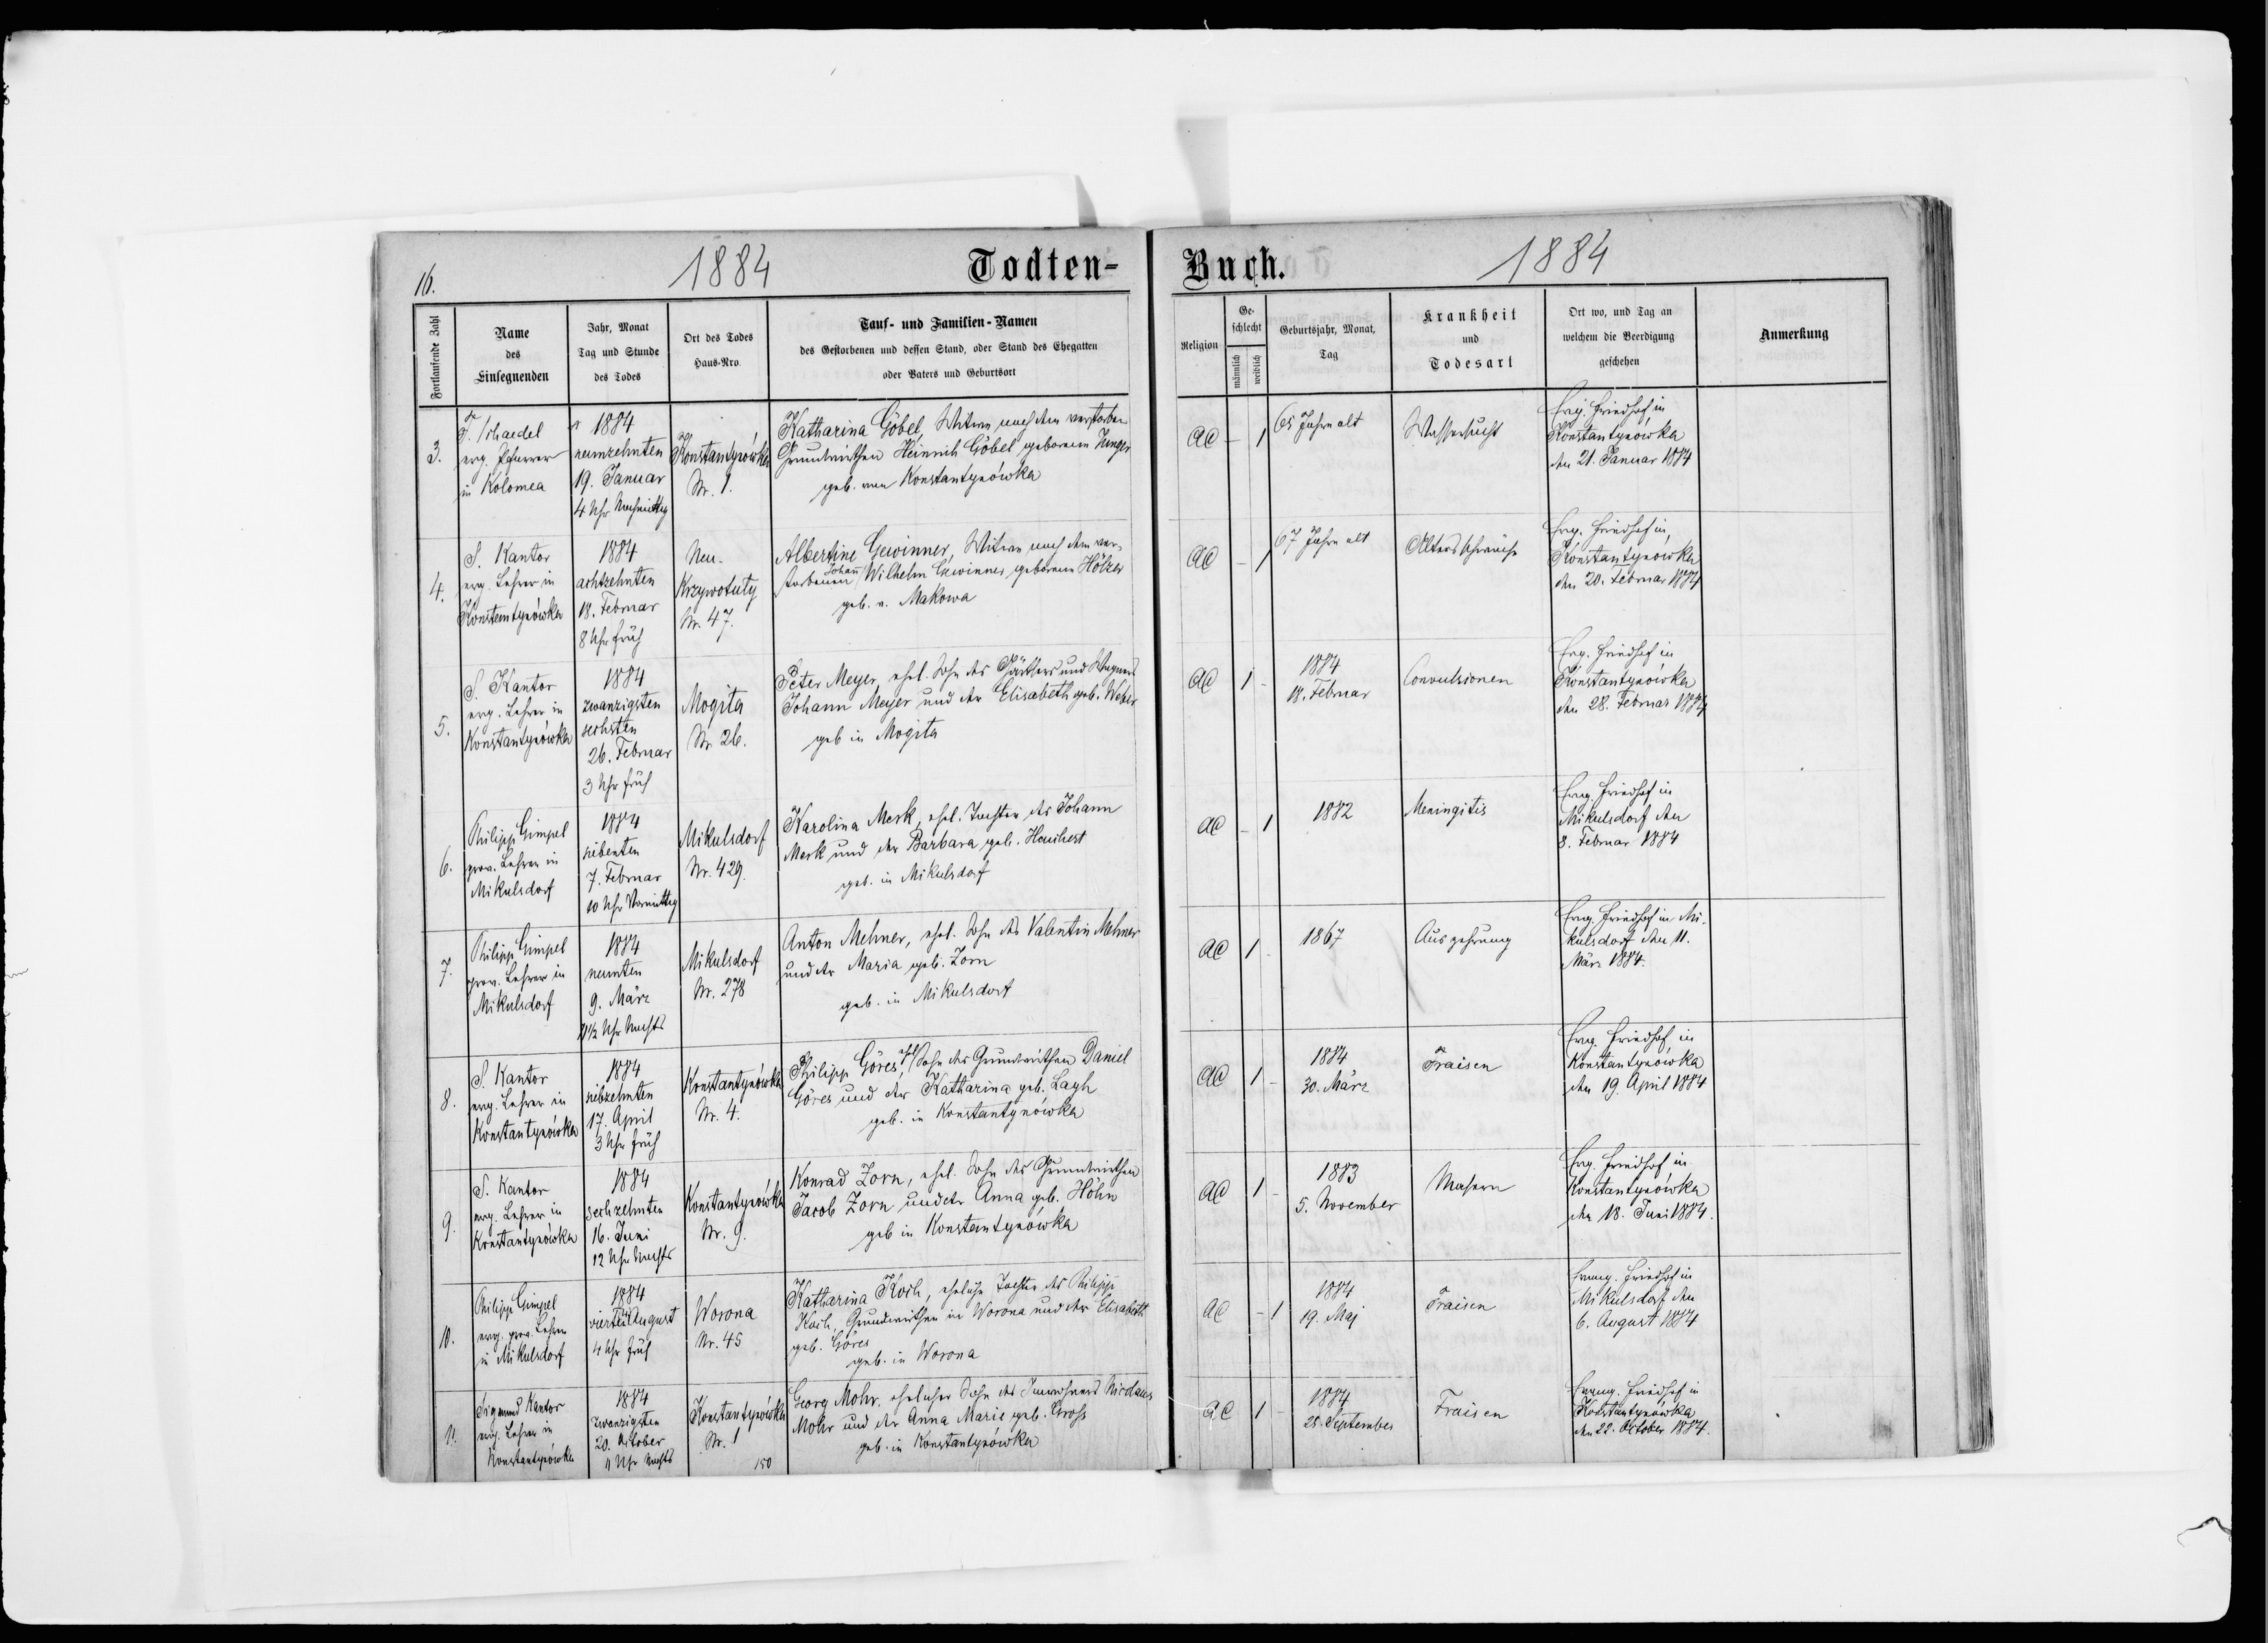 16.
1884
Todten-
Buch.
1884
Fortlaufende Zahl
Name
des
Einsegnenden
Jahr, Monat
Tag und Stunde
des Todes
Ort des Todes
Haus-Nro.
Tauf- und Familien-Namen
des Gestorbenen und dessen Stand, oder Stand des Ehegatten
oder Vaters und Geburtsort
Religion
Ge-
schlecht
männlich
weiblich
Geburtsjahr, Monat,
Tag
Krankheit
und
Todesart
Ort wo, und Tag an
welchem die Beerdigung
geschehen
Anmerkung
3.
F. Schaedel
evg. Pfarrer
in Kolomea
1884
neunzehnten
19. Januar
4 Uhr Nachmittag
Konstantynówka
Nr. 1.
Katharina Göbel, Witwe nach dem verstorben
Grundwirthen Heinrich Göbel geborenen Junger
geb. von Konstantynówka
AC - 1
65 Jahre alt
Wassersucht
Evg. Friedhof in
Konstantynówka
den 21. Januar 1884
4.
S. Kantor
evg. Lehrer in
Konstantynówka
1884
achtzehnten
18. Februar
8 Uhr früh
Neu-
Krzywotuły
Nr. 47.
Albertine Gewinner, Witwe nach dem ver-
storbenen Johann Wilhelm Gewinner geborenen Hölzer
geb. v. Makowa
AC - 1
67 Jahre alt
Altersschwäche
Evg. Friedhof in
Konstantynówka
den 20. Februar 1884
5.
S. Kantor
evg. Lehrer in
Konstantynówka
1884
zwanzigsten
sechsten
26. Februar
3 Uhr früh
Mogiła
Nr. 26.
Peter Meyer, ehel. Sohn des Pächters und Wagners
Johann Meyer und der Elisabeth geb. Weber
geb in Mogiła
AC 1 -
1884
18. Februar
Convulsionen
Evg. Friedhof in
Konstantynówka
den 28. Februar 1884
6.
Philipp Gimpel
prov. Lehrer in
Mikulsdorf
1884
siebenten
7. Februar
10 Uhr Vormittag
Mikulsdorf
Nr. 429.
Karolina Merk, ehel. Tochter des Johann
Merk und der Barbara geb.
geb. in Mikulsdorf
AC - 1
1882
Meningitis
Evg. Friedhof in
Mikulsdorf den
8. Februar 1884
7.
Philipp Gimpel
prov. Lehrer in
Mikulsdorf
1884
neunten
9. März
11½ Uhr Nachts
Mikulsdorf
Nr. 278
Anton Mehner, ehel. Sohn des Valentin Mehner
und der Maria geb. Zorn
geb. in Mikulsdorf
AC 1 -
1867
Auszehrung
Evg. Friedhof in Mi-
kulsdorf den 11.
März 1884.
8.
S. Kantor
evg. Lehrer in
Konstantynówka
1884
siebzehnten
17. April
3 Uhr früh
Konstantynówka
Nr. 4.
Philipp Göres, ehel. Sohn des Grundwirthen Daniel
Göres und der Katharina geb. Lagh
geb. in Konstantynówka
AC 1 -
1884
30. März
Fraisen
Evg. Friedhof in
Konstantynówka
den 19. April 1884
9.
S. Kantor
evg. Lehrer in
Konstantynówka
1884
sechzehnten
16. Juni
12 Uhr Nachts
Konstantynówka
Nr. 9.
Konrad Zorn, ehel. Sohn des Grundwirthen
Jacob Zorn und der Anna geb. Höhn
geb in Konstantynówka
AC 1 -
1883
5. November
Masern
Evg. Friedhof in
Konstantynówka
den 18. Juni 1884.
10.
Philipp Gimpel
evg. prov. Lehrer
in Mikulsdorf
1884
vierten August
4 Uhr früh
Worona
Nr. 45
Katharina Koch, eheliche Tochter des Philipp
Koch, Grundwirthen in Worona und der Elisabeth
geb. Göres
geb. in Worona
AC - 1
1884
19. Maj
Fraisen
Evang. Friedhof in
Mikulsdorf den
6. August 1884
11.
Sigmund Kantor
evg. Lehrer in
Konstantynówka
1884
zwanzigsten
20. October
11 Uhr Nachts
Konstantynówka
Nr. 1
150
Georg Mohr, ehelicher Sohn des Inwohners Nicolaus
Mohr und der Anna Marie geb. Gross
geb. in Konstantynówka
AC 1 -
1884
28. September
Fraisen
Evang. Friedhof in
Konstantynówka
den 22. October 1884.